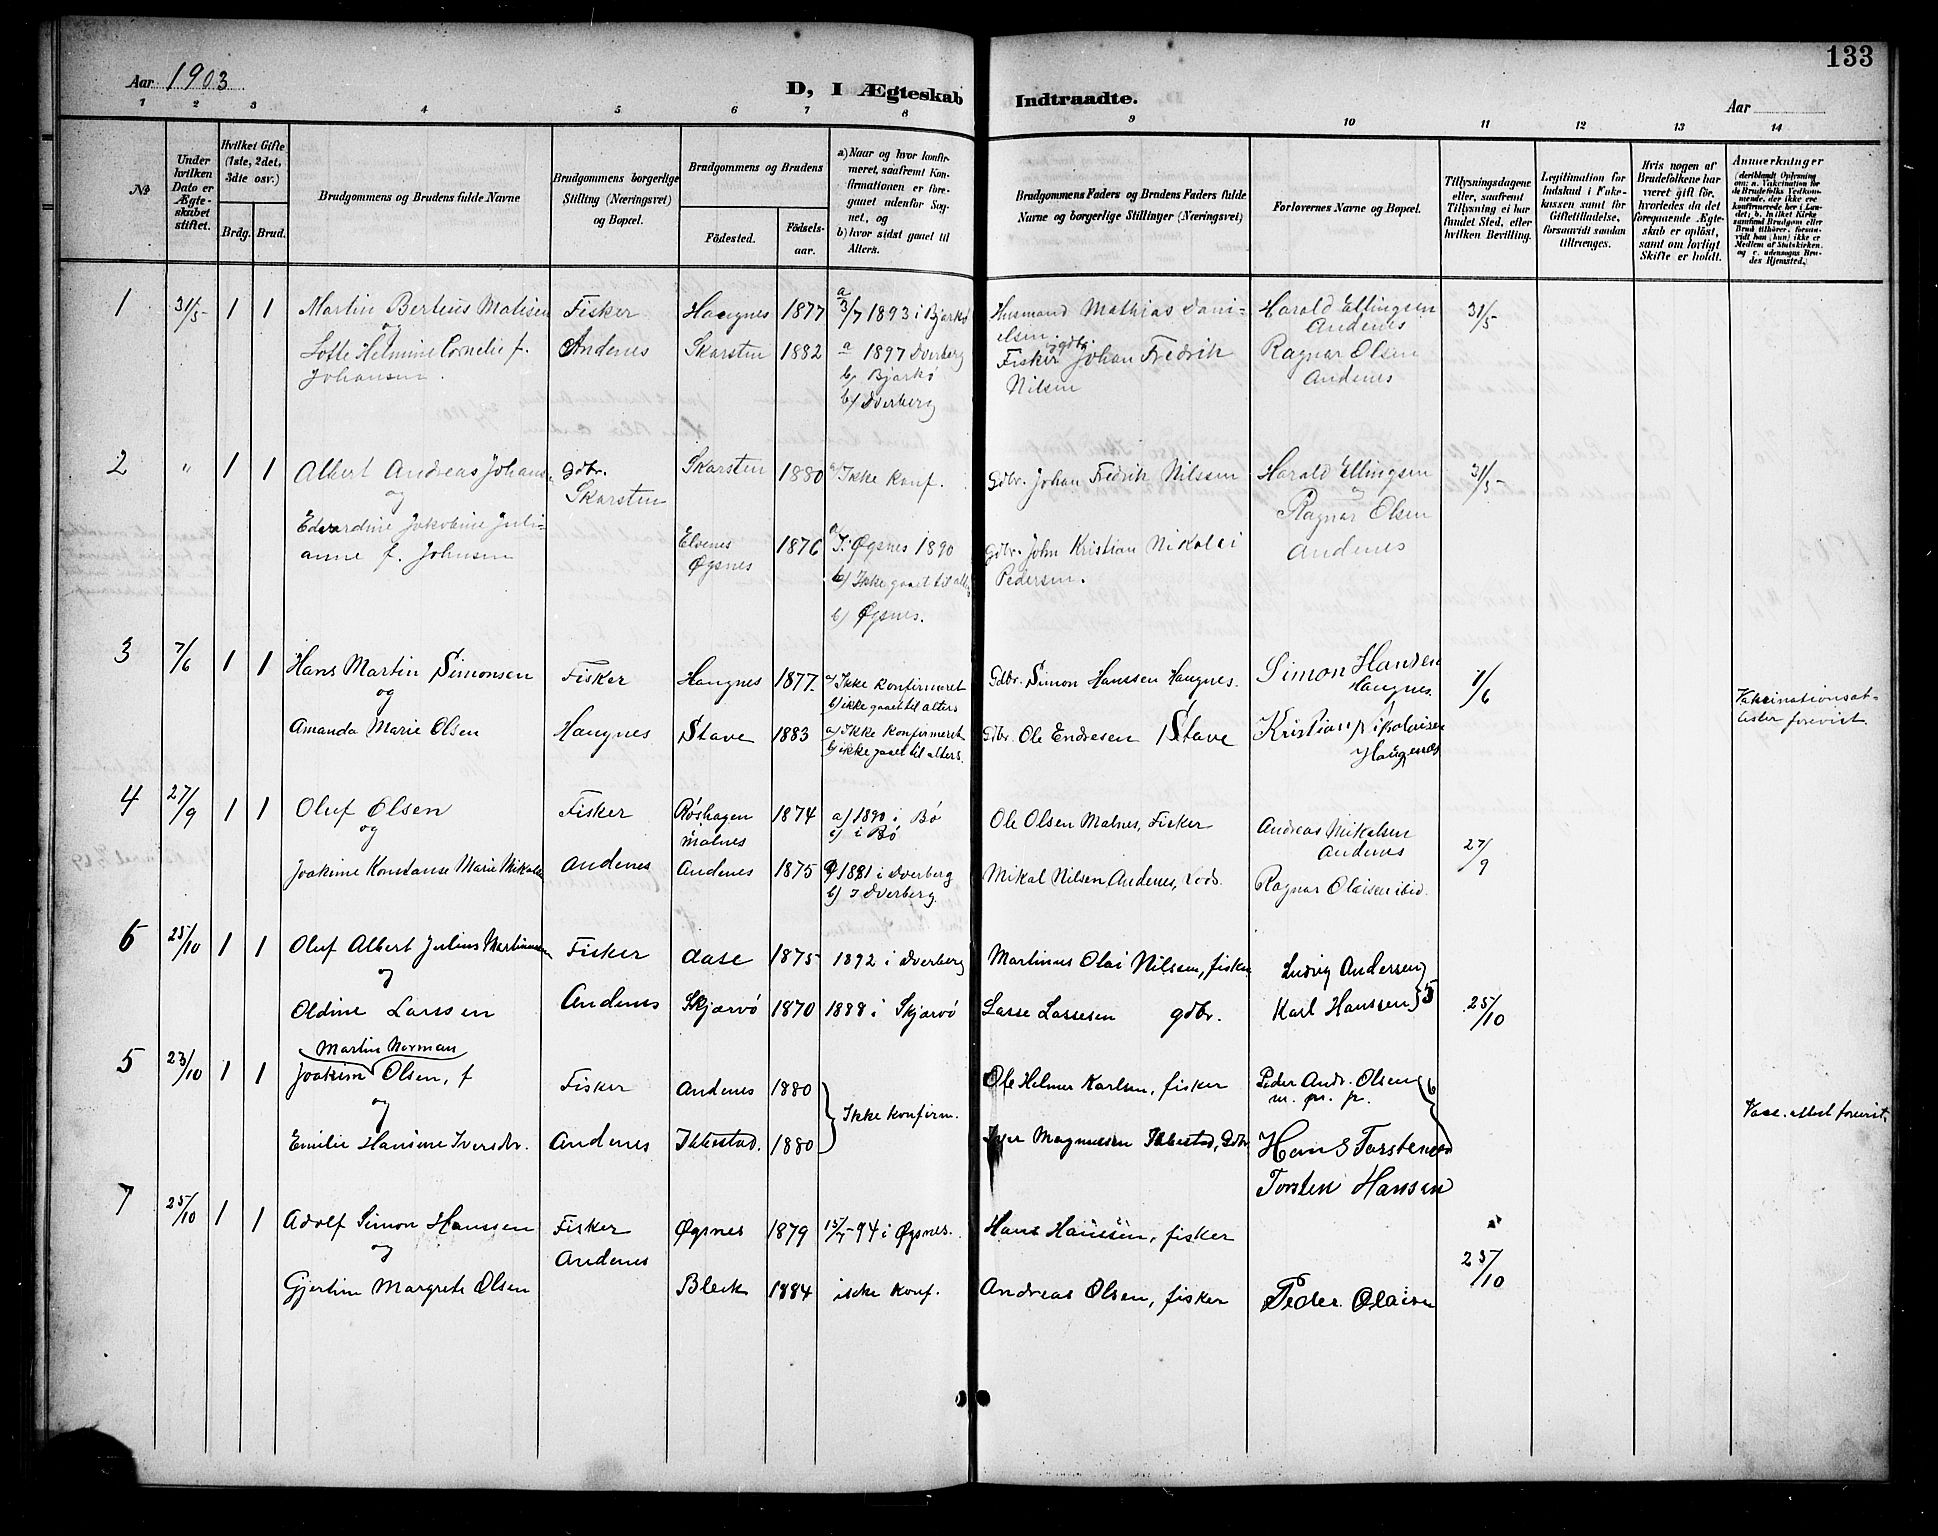 133
Aar 1903
D, I Ægteskab Indtraadte.
Aar
1 2 3 4 5 6 7 8 9 10 11 12 13 14
No
Under hvilken Dato er Ægteskabet stiftet.
Hvilket Gifte (1ste, 2det, 3dte osv.)
Brdg. Brud.
Brudgommens og Brudens fulde Navne
Brudgommens borgerlige Stilling (Næringsvei) og Bopæl.
Brudgommens og Brudens
Födested.
Födselsaar.
a) Naar og hvor konfirmeret, saafremt Konfirmationen er foregaaet udenfor Sognet, og
b) hvor sidst gaaet til Alters.
Brudgommens Faders og Brudens Faders fulde Navne og borgerlige Stillinger (Næringsvei)
Forlovernes Navne og Bopæl.
Tillysningsdagene eller, saafremt Tillysning ei har fundet Sted, efter hvilken Bevilling.
Legitimation for Indskud i Enkekassen samt for Giftetilladelse, forsaavidt saadan tiltrænges.
Hvis nogen af Brudefolkene har været gift før, hvorledes da det foregaaende Ægteskab er opløst, samt om lovligt Skifte er holdt.
Anmerkninger (deriblandt Oplysning om: a. Vakcination for de Brudefolks Vedkommende, der ikke ere konfirmerede her i Landet; b. hvilket Kirkesamfund Brudgom eller Brud tilhører, forsaavidt han (hun) ikke er Medlem af Statskirken, og c. udensogns Brudes Hjemsted.)
1 31/5 1 1 Martin Berteus Matisen Fisker Haugnes 1877 a 3/7 1893 i Bjarkø Husmand Mathias Danielsen Harald Ellingsen Andenes 31/5
og
Lotte Helmine Cornelie f. Johansen. Andenes Skarsten 1882 a 1897 Dverberg Fisker og gdbr. Johan Fredrik Nilsen Ragnar Olsen Andenes
b/ Bjarkø
b/ Dverberg
2 " 1 1 Albert Andreas Johans. Gdbr. Skarsten Skarsten 1880 a/ Ikke konf. Gdbr. Johan Fredrik Nilssen Harald Ellingsen 31/5
og
Edvardine Jakobine Julianne f. Johnsen Elvenes Øgsnes 1876 a/ I. Øgsnes 1890 Gdbr. John Kristian Nikolai Pedersen. Ragnar Olsen Andenes
b/ Ikke gaaet til alt.
b/ Øgsnes.
3 7/6 1 1 Hans Martin Simonsen Fisker Haugnes 1877. a/ Ikke konfirmeret Gdbr. Simon Hanssen Haugnes. Simon Hansen Haugnes. 1/6
b/ ikke gaaet til alters
og Vakcinationsatester forevist.
Amanda Marie Olsen Haugnes Stave 1883 a/ Ikke konfirmeret Gdbr. Ole Endresen Stave Kristian Nikolaisen Haugenes
b/ ikke gaaet til alters.
4 27/9 1 1 Oluf Olsen Fisker Røshagen Malnes 1874 a/ 1890 i Bø Ole Olsen Malnes, Fisker Andreas Mikalsen Andenes 27/9
b/ i Bø
og
Joakime Konstanse Marie Mikals. Andenes Andenes 1875 1891 i Dverberg Mikal Nilsen Andenes, Lods. Ragnar Olaisen ibid.
b/ I Dverberg.
6 25/10 1 1 Oluf Albert Julius Martinussen Fisker Aase 1875 1892 i Dverberg Martinus Olai Nilssen, fisker Ludvig Andersen
og
Oldine Larssen Andenes Skjærvö 1870 1888 i Skjærvö Lasse Lassesen gdbr. Karl Hanssen 5 25/10
5 23/10 1 1 Martin Norman
Joakim Olsen, f Fisker Andenes 1880 Ikke konfirm. Ole Helmer Karlsen, fisker Peder Andr. Olsen 6
m. p. p.
og Vacc. attest forevist.
Emilie Hansine Iversdr. Andenes Ibbestad. 1880 Iver Magnussen Ibbestad, Gdbr. Hans Torstensen
Torsten Hansen
7 25/10 1 1 Adolf Simon Hanssen Fisker Øgsnes 1879 15/7-94 i Øgsnes. Hans Hanssen, fisker
og Andenes 25/10
Gjertine Margrete Olsen Bleik 1884 ikke konf. Andreas Olsen, fisker Peder Olaisen